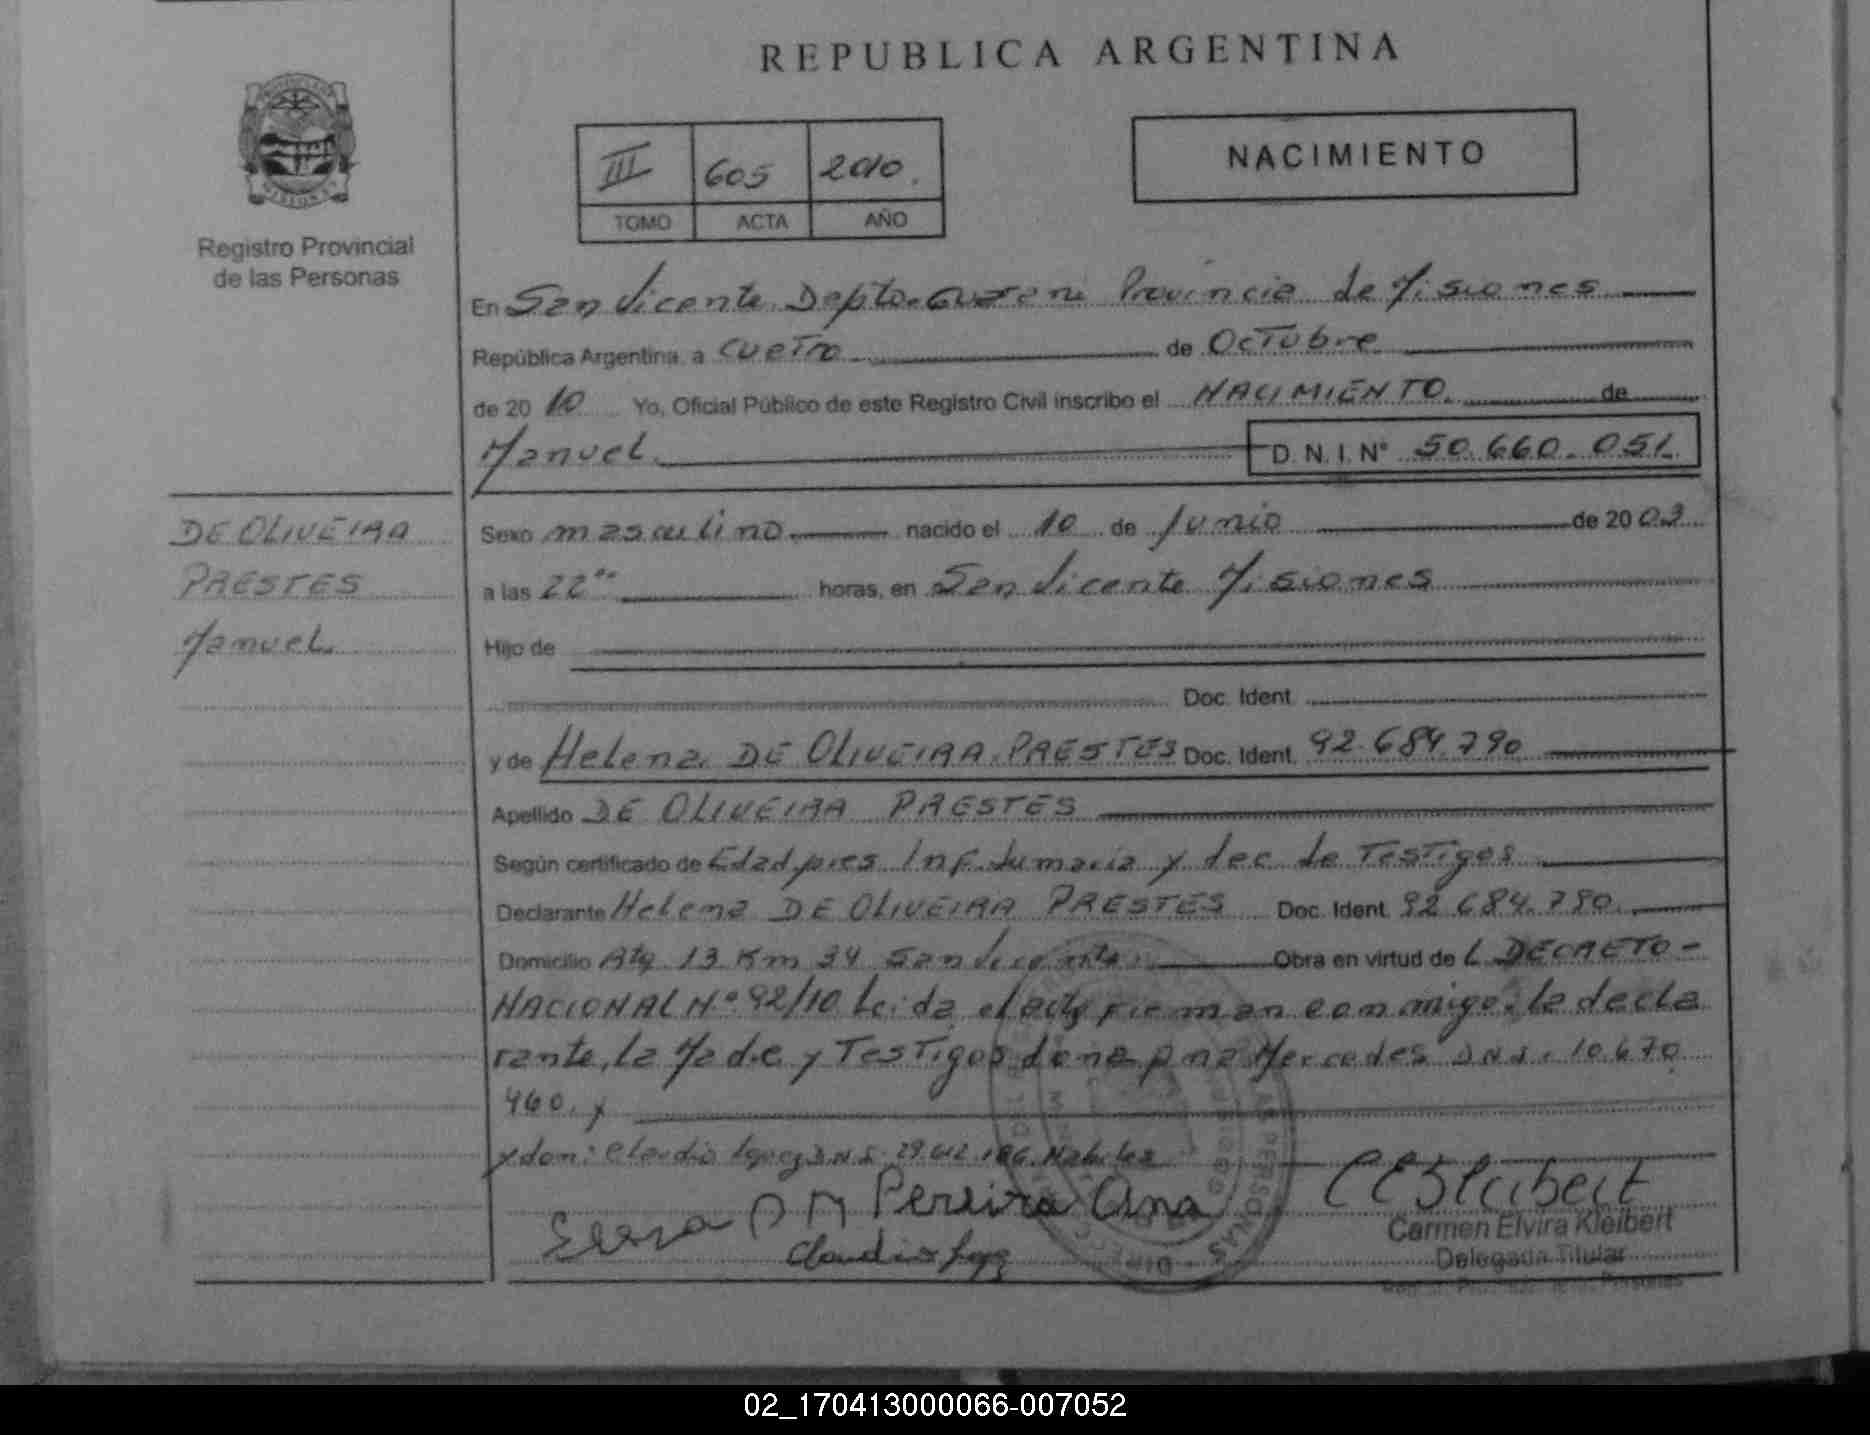 REPUBLICA ARGENTINA
Registro Provincial
de las Personas
III 605 2010.
TOMO ACTA AÑO
NACIMIENTO
En San Vicente Depto. Guarani Provincia de Misiones
República Argentina, a cuatro de Octubre
de 20 10 Yo, Oficial Público de este Registro Civil inscribo el NACIMIENTO. de
Manuel. D. N. I. N° 50.660.051.
DE OLIVEIRA
PRESTES
Manuel.
Sexo masculino nacido el 10 de Junio de 20 03
a las 22 horas, en San Vicente Misiones
Hijo de
Doc. Ident.
y de Helena DE OLIVEIRA PRESTES Doc. Ident. 92.684.790
Apellido DE OLIVEIRA PRESTES
Según certificado de Edad pres Inf. Sumaria y dec de Testigos
Declarante Helena DE OLIVEIRA PRESTES Doc. Ident. 92.684.790.
Domicilio 13 Km 34 San Vicente. Obra en virtud de L DECRETO-
NACIONAL N° 92/10 Leida el acta firman conmigo: la decla
rante, la Madre y Testigos dona Ana Mercedes D.N.I. 10.670
460. y
y don: Claudio Lopez D.N.I.
Pereira Ana
Claudio Lopez
Carmen Elvira Kleibert
Delegada Titular
02_170413000066-007052